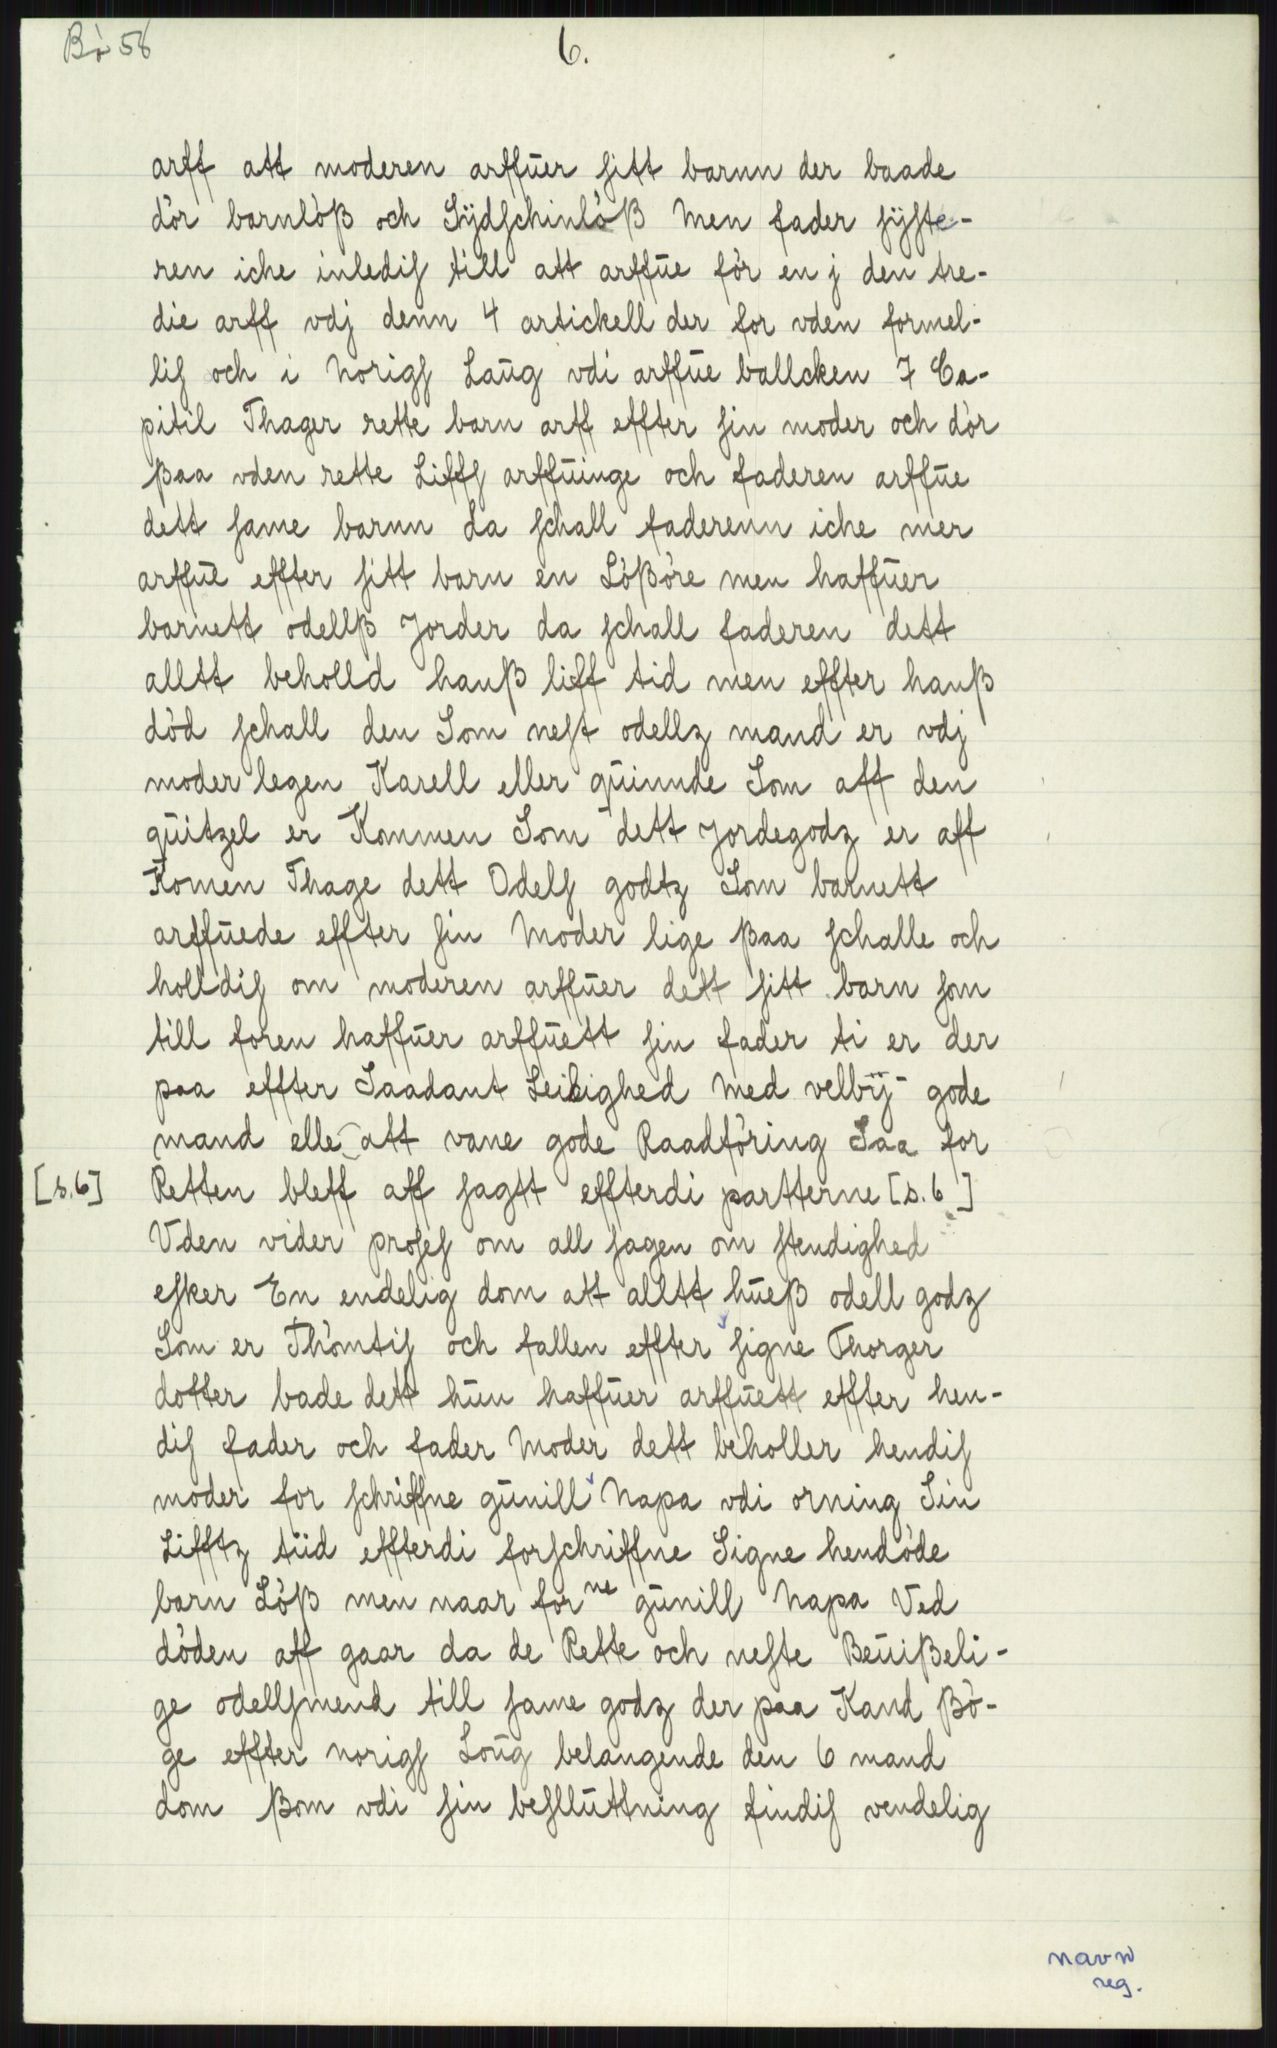 Bò 56
6.
arff att moderen arffūer sitt barnn der baade
dòr barnlòß och Sÿdschinlòß Men fader sÿste-
ren iche inledis till att arffūe fòr en j den tre-
die arff vdj denn 4 artickell der for vden formel-
lis och i Norigs Laūg vdi arffūe ballcken 7 Ca-
pitil Thager rette barn arff effter sin moder och dòr
ßaa vden rette Liffs arffūinge och faderen arffūe
dett same barnn da schall faderenn iche mer
arffūe effter sitt barn en Lòßòre men haffūer
barnett odellß Jorder da schall faderen dett
alltt beholld hanß liff tid men effter hanß
dòd schall den Som nest odellz mand er vdj
moder legen Karell eller qūinnde Som aff den
qūitzel er Kommen Som dett Jordegodz er aff
Komen Thage dett Odels godtz Som barnett
arffūede effter sin Moder lige ßaa schalle och
holldis om moderen arffūer dett sitt barn som
till foren haffūer arffūett sin fader ti er der
paa effter Saadant Leilighed Med velbÿ- gode
mand elle att vane gode Raadfòring Saa for
[s.6] Retten bleff aff sagtt effterdi partterne [s.6]
Vden vider proses om all sagen om stendighed
esker En endelig dom att alltt hūeß odell godz
Som er Thòmtis och fallen effter Signe Thorger
dotter bade dett hūn haffūer arffūett effter hen-
dis fader och fader Moder dett beholler hendis
moder for schriffne gūnill Napa vdi orning Sin
Lifftz tiid effterdi forschriffne Signe hendòde
barn Lòß men naar for ne gūnill Napa Ved
dòden aff gaar da de Rette och neste Beūißeli-
ge odellsmend till same godz der paa Kand Bò-
ge effter norigs Loūg belangende den 6 mand
dom ßom vdi sin beslūttning findis vendelig
navn
reg.